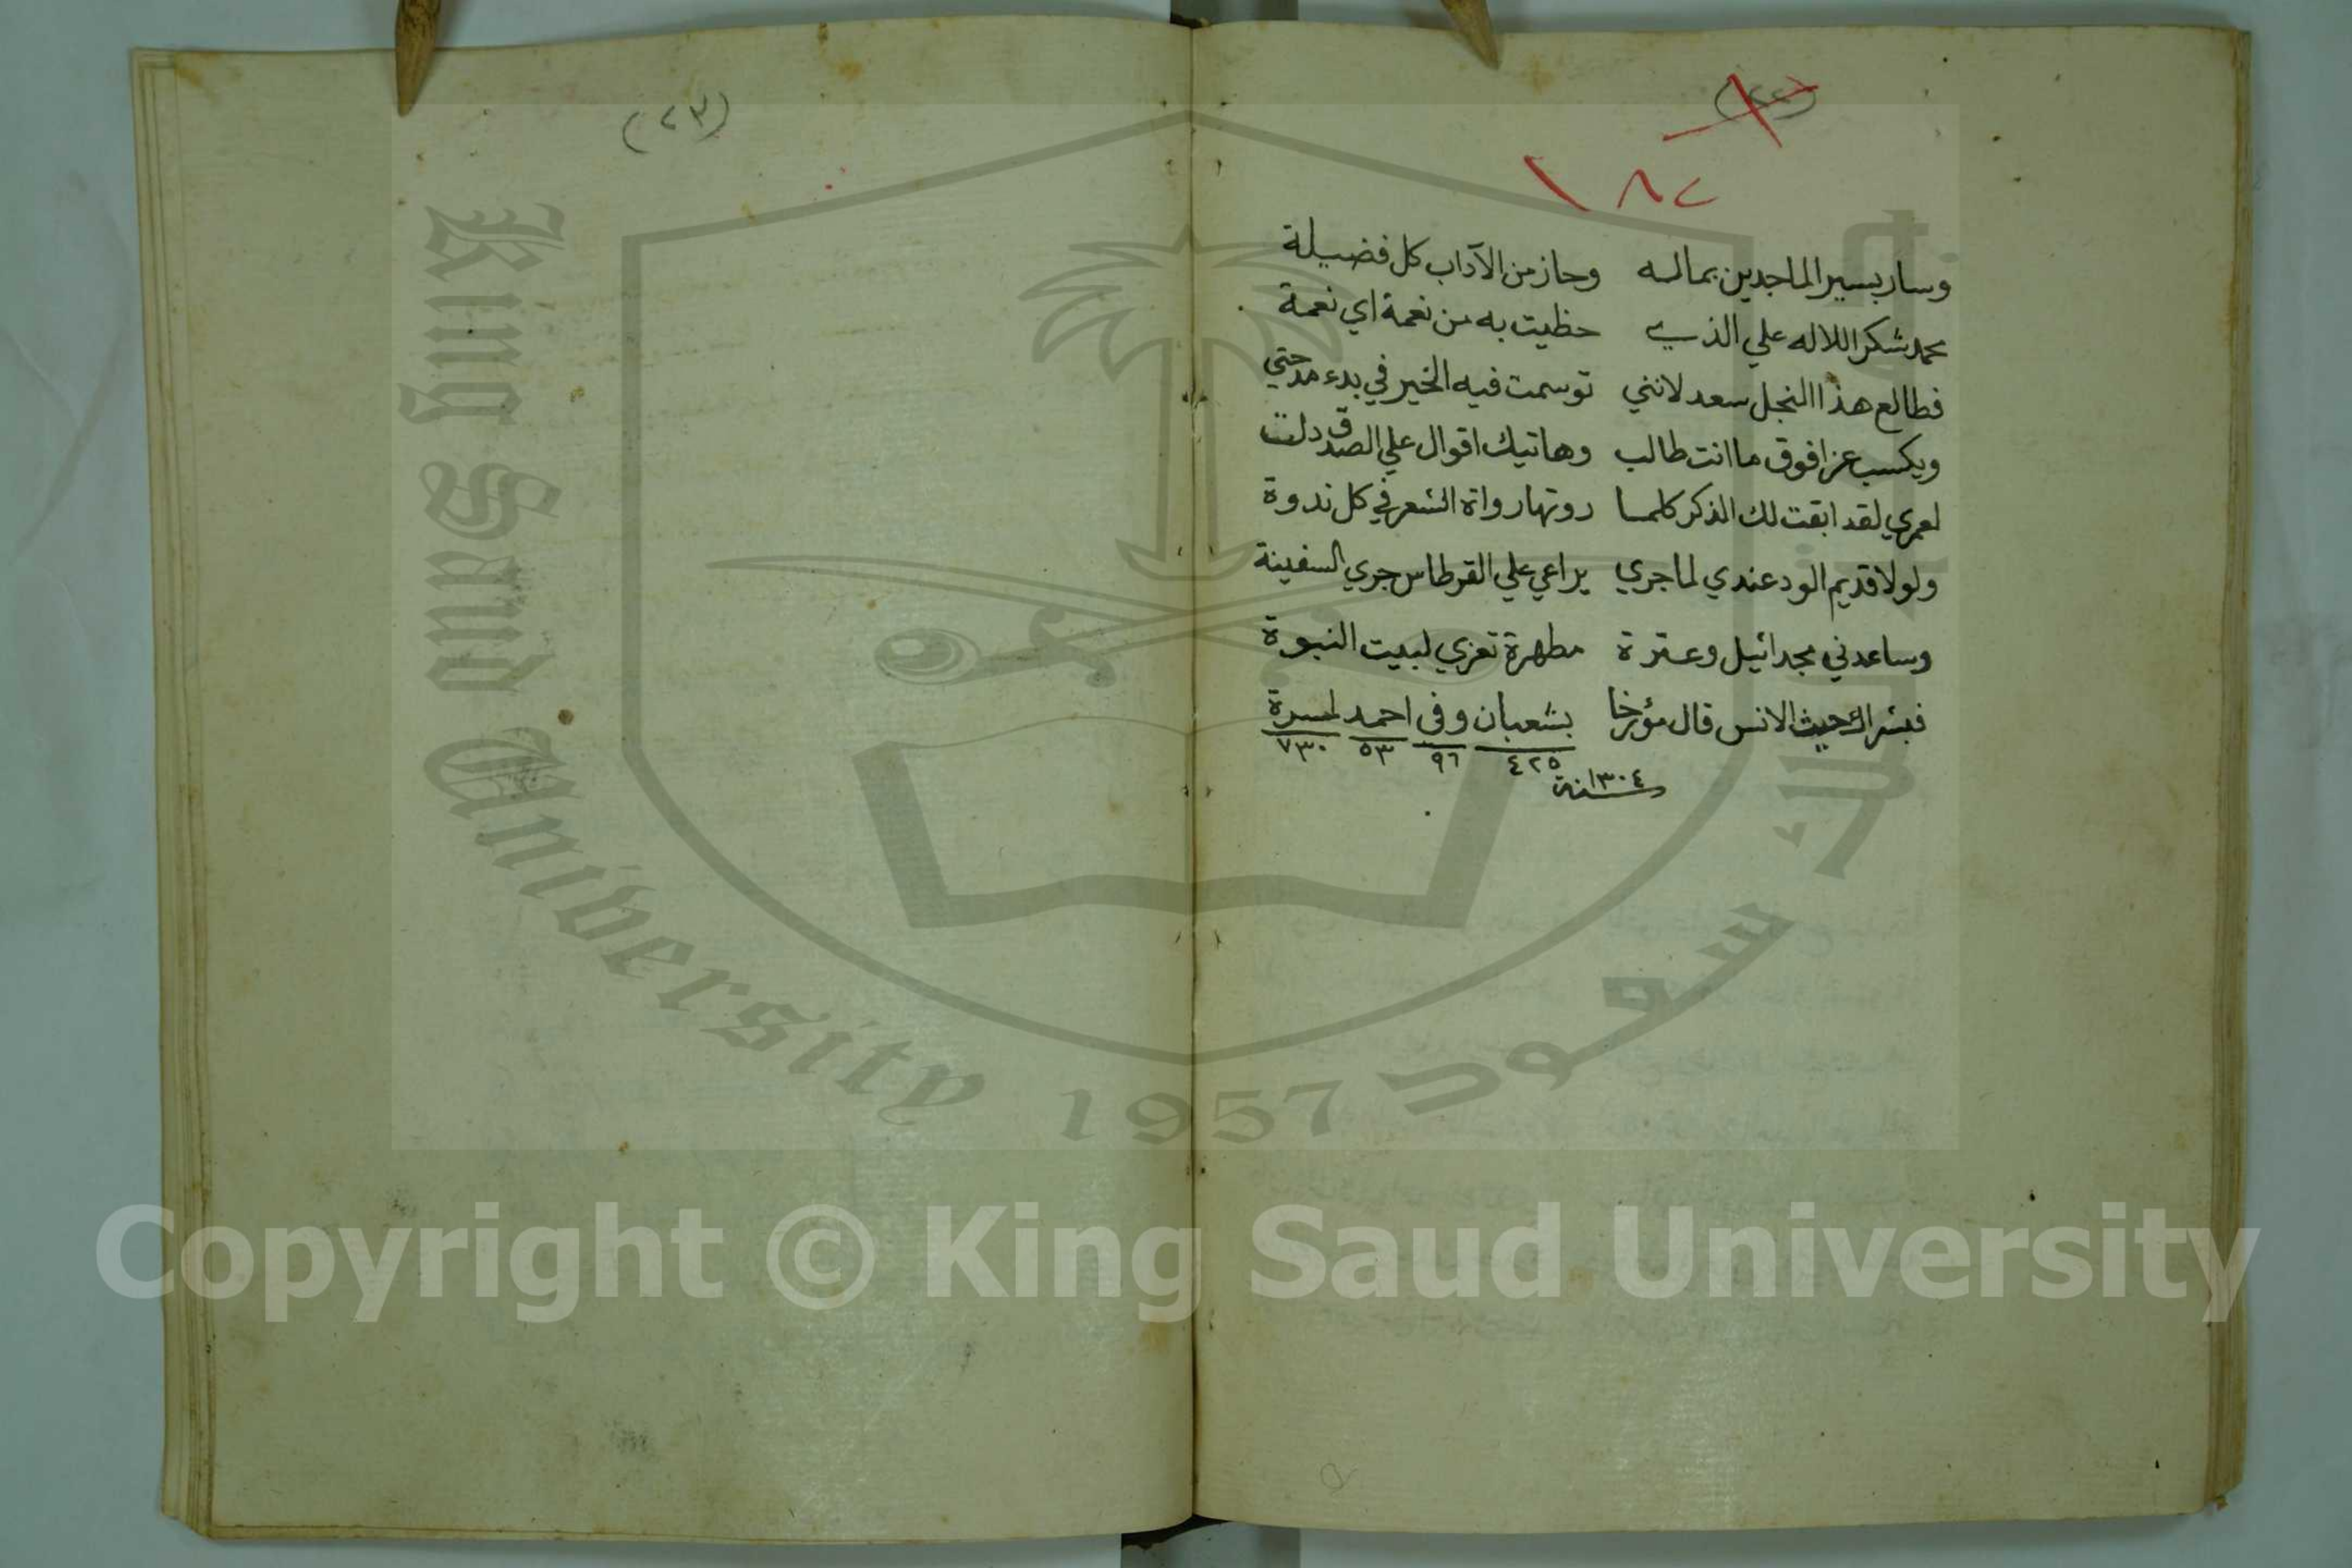 (٢٢)
١٨٢
وسار بسير الماجدين بماله وحاز من الآداب كل فضيلة
محمد شكرا للاله علي الذي حظيت به من نعمة اي نعمة
فطالع هذا النجل سعد لانني توسمت فيه الخير في بدء مدحتي
ويكسب عزا فوق ما انت طالب وهاتيك اقوال علي الصدق دلت
لعمري لقد ابقت لك الذكر كلما روتها رواة الشعر في كل ندوة
ولولا قديم الود عندي لما جري يراعي علي القرطاس جري السفينة
وساعدني مجد اثيل وعترة مطهرة تعزي لبيت النبوة
فبشراك حيث الانس قال مؤرخا بشعبان وفي احمد لمسرة
٤٢٥ ٩٦ ٥٣ ٧٣٠
سنة ١٣٠٤
(٢٣)
King Saud University
1957
سعود
Copyright © King Saud University